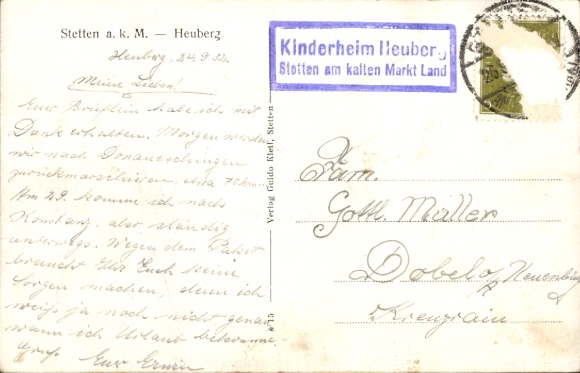 Stetten a. k. M. — Heuberg
Heuberg, 24.9.32.
Meine Lieben!
Euer Brieflein habe ich mit
Dank erhalten. Morgen werden
wir nach Donaueschingen
zurückmarschieren, etwa 70 km.
Am 29. komme ich nach
Konstanz, also ständig
unterwegs. Wegen dem Paket
braucht Ihr Euch keine
Sorgen machen, denn ich
weiß ja noch nicht genau
wann ich Urlaub bekomme.
Gruß Euer Erwin
Verlag Guido Kleff, Stetten
Kinderheim Heuberg
Stetten am kalten Markt Land
Fam.
Gottl. Müller
Dobel o/a Neuenbürg
Kreuzrain